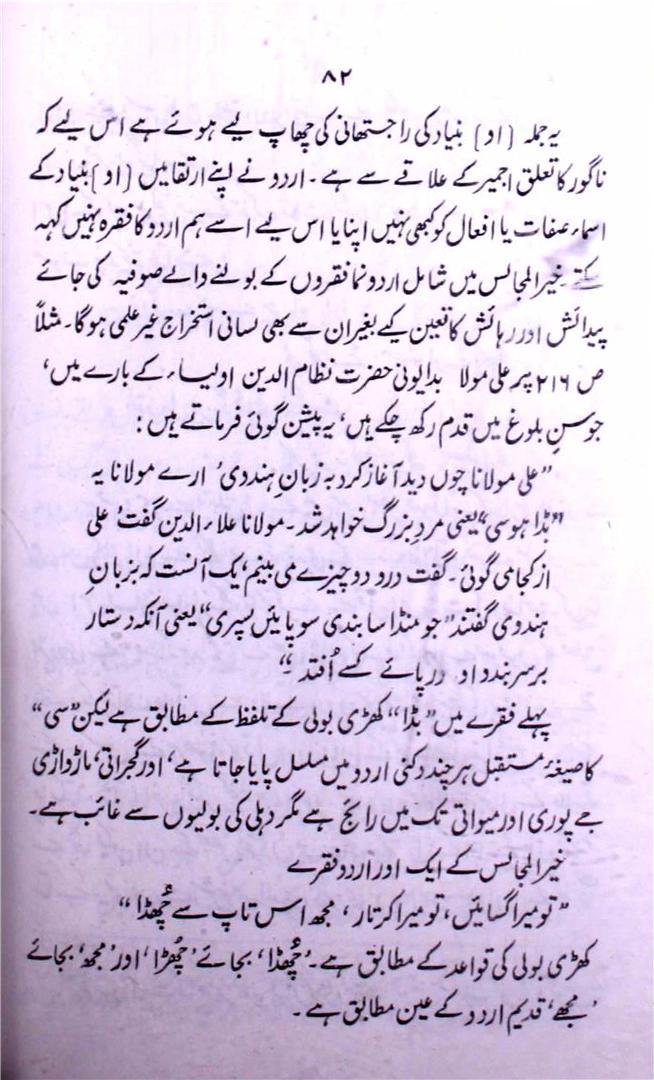 ۸۲
یہ جملہ (او) بنیاد کی راجستھانی کی چھاپ لیے ہوئے ہے اس لیے کہ
ناگور کا تعلق اجمیر کے علاقے سے ہے۔ اردو نے اپنے ارتقا میں (او) بنیاد کے
اسماء صفات یا افعال کو کبھی نہیں اپنایا اس لیے اسے ہم اردو کا فقرہ نہیں کہہ
سکتے۔ خیر المجالس میں شامل اردو نما فقروں کے بولنے والے صوفیہ کی جائے
پیدائش اور رہائش کا تعین کیے بغیر ان سے بھی لسانی استخراج غیر علمی ہوگا۔ مثلاً
ص ۲۱۶ پر علی مولا بدایونی حضرت نظام الدین اولیاء کے بارے میں،
جو سنِ بلوغ میں قدم رکھ چکے ہیں، یہ پیشن گوئی فرماتے ہیں:
”علی مولانا چوں دید آغاز کرد بہ زبانِ ہندوی‘ ارے مولانا یہ
”بڈا ہوسی“ یعنی مردِ بزرگ خواہد شد۔ مولانا علاء الدین گفت‘ علی
از کجا می گوئی۔ گفت درد دو چیزے می بینم‘ یک آنست کہ بزبانِ
ہندوی گفتند ”جو منڈا سا بندی سو پائیں پسری“ یعنی آنکہ دستار
بر سر بندد او در پائے کسے اُفتد۔“
پہلے فقرے میں ”بڈا“ کھڑی بولی کے تلفظ کے مطابق ہے لیکن ”سی“
کا صیغۂ مستقبل ہر چند دکنی اردو میں مسلسل پایا جاتا ہے‘ اور گجراتی‘ ماڑواڑی
جے پوری اور میواتی تک میں رائج ہے مگر دہلی کی بولیوں سے غائب ہے۔
خیر المجالس کے ایک اور اردو نقرے
”تو میرا گسائیں، تو میرا کرتار، مجھ اس تاپ سے چُھڈا“
کھڑی بولی کی قواعد کے مطابق ہے۔ ’چُھڈا‘، بجائے ’چُھڑا‘، اور ’مجھ‘ بجائے
’مجھے‘ قدیم اردو کے عین مطابق ہے۔